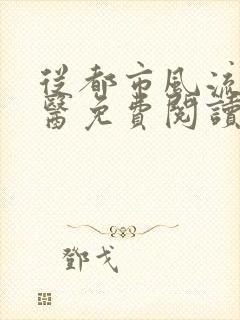 從都市風流
醫免費閱讀
鄧戈